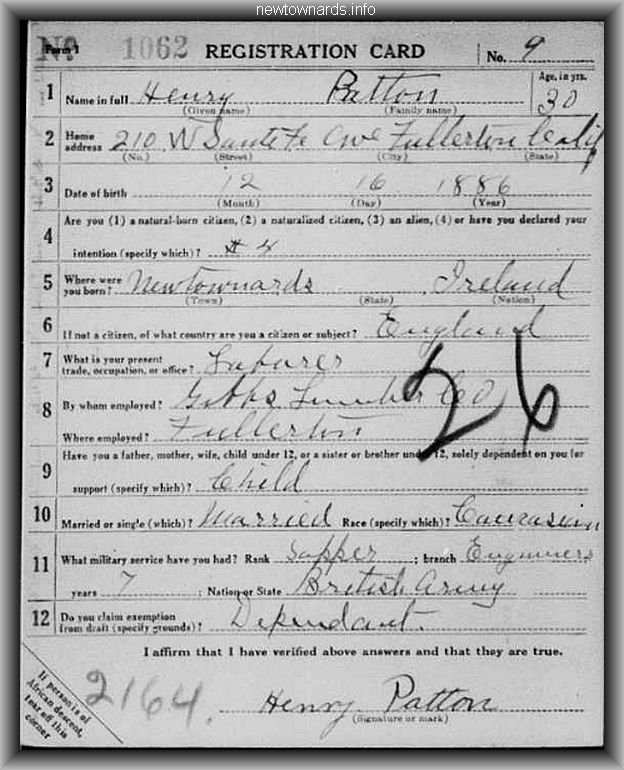 newtownards.info
Form 1 No. 1062 REGISTRATION CARD No. 9
1 Name in full Henry Patton Age, in yrs. 30
(Given name) (Family name)
2 Home address 210 W Santa Fe Ave Fullerton Calif
(No.) (Street) (City) (State)
3 Date of birth 12 16 1886
(Month) (Day) (Year)
4 Are you (1) a natural-born citizen, (2) a naturalized citizen, (3) an alien, (4) or have you declared your
intention (specify which)? # 4
5 Where were you born? Newtownards Ireland
(Town) (State) (Nation)
6 If not a citizen, of what country are you a citizen or subject? England
7 What is your present trade, occupation, or office? Laborer
8 By whom employed? Gibbs Lumber Co
Where employed? Fullerton
26
9 Have you a father, mother, wife, child under 12, or a sister or brother under 12, solely dependent on you for
support (specify which)? Child
10 Married or single (which)? Married Race (specify which)? Caucasian
11 What military service have you had? Rank Sapper ; branch Engineers
years 7 ; Nation or State British Army
12 Do you claim exemption from draft (specify grounds)? Dependant.
I affirm that I have verified above answers and that they are true.
2164.
Henry Patton
(Signature or mark)
If person is of
African descent,
tear off this
corner